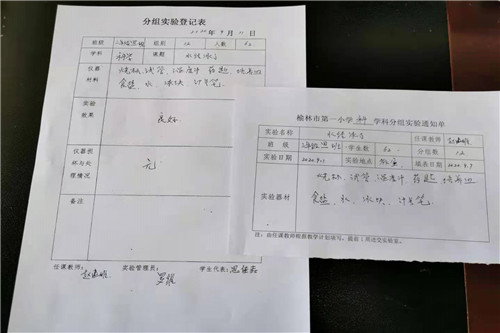 分组实验登记表
2020年9月11日
班级 组别 12 人数 60
学科 科学 课题 水结冰了
仪器
材料
烧杯、试管、温度计、药匙、培养皿
食盐、水、冰块、计号笔
实验
效果
良好
仪器损
坏与处
理情况
无
备注
任课教师: 实验管理员: 学生代表:
榆林市第一小学 科学 学科分组实验通知单
实验名称 水结冰了 任课教师
班级 学生数 60 分组数 12
实验日期 2020.9.11 实验地点 填表日期 2020.9.9
实验器材
烧杯、试管、温度计、药匙、培养皿
食盐、水、冰块、计号笔
注:由任课教师根据教学计划填写,提前1周送交实验室。